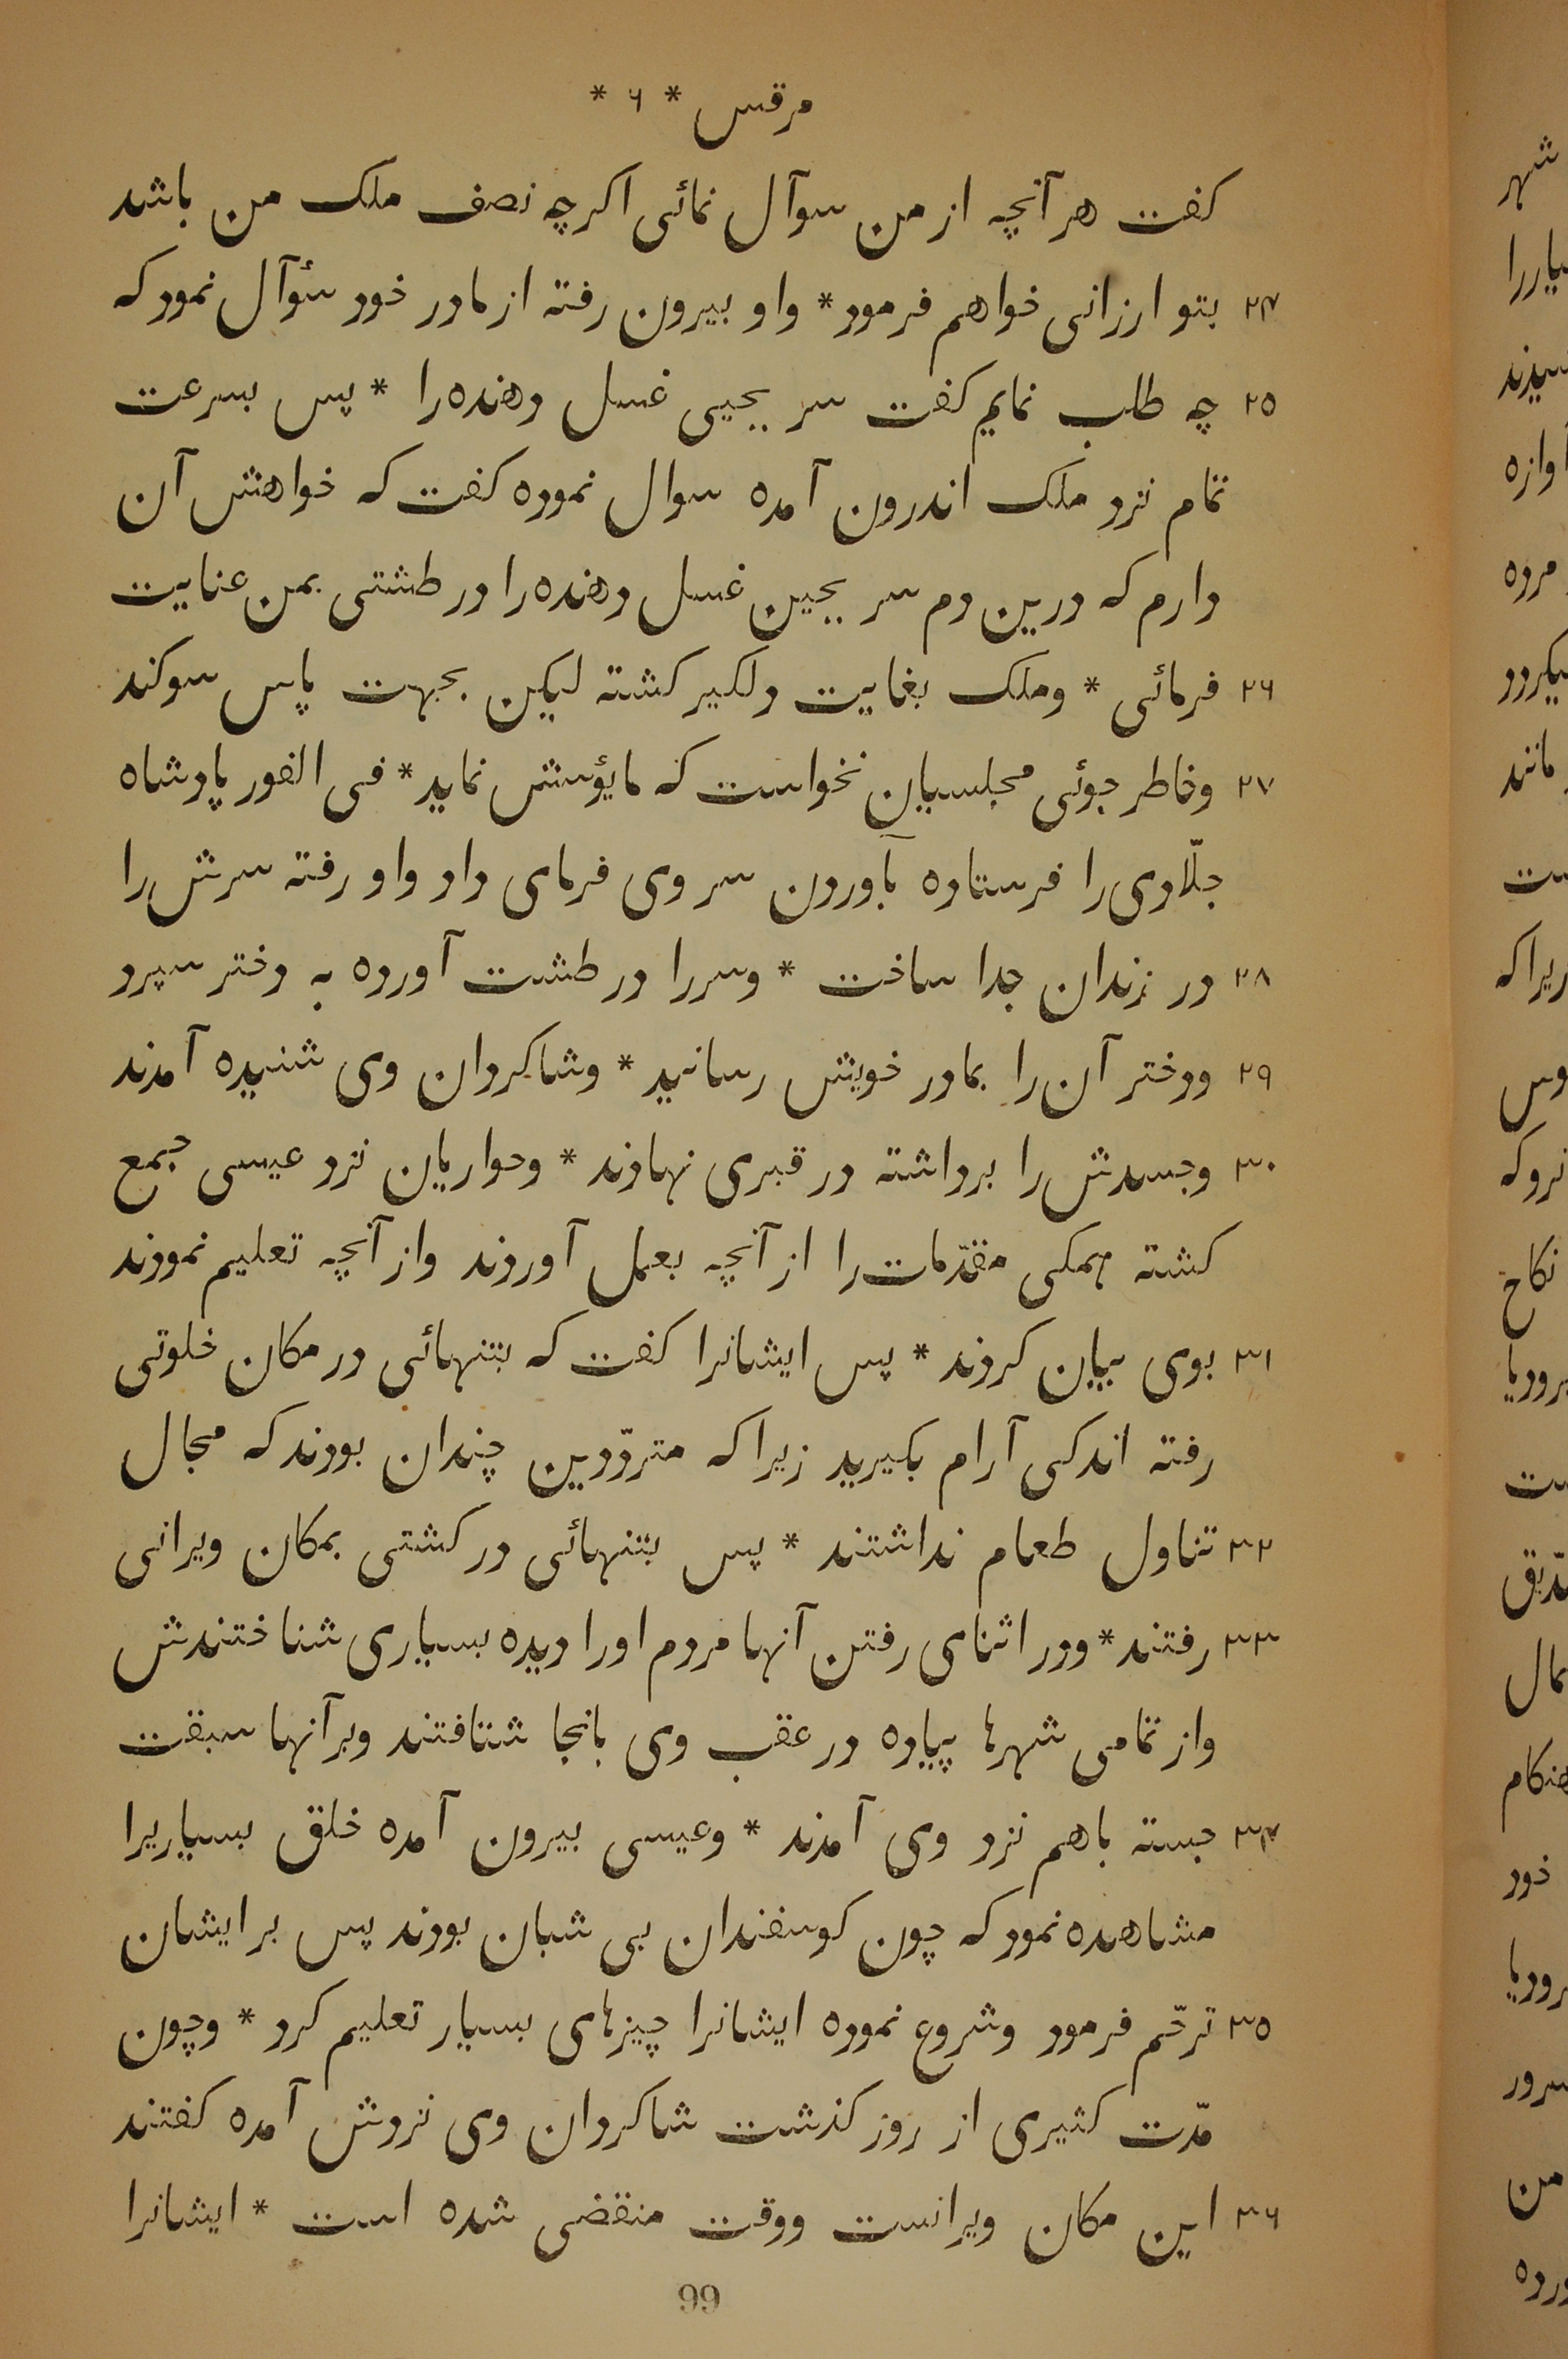 مرقس * ۶ *
کفت هر آنچه از من سوآل نمائی اکرچه نصف ملک من باشد
۲۴ بتو ارزانی خواهم فرمود * واو بیرون رفته از مادر خود سئوآل نمود که
۲۵ چه طلب نمایم کفت سر یحیی غسل دهنده را * پس بسرعت
تمام نزد ملک اندرون آمده سوال نموده کفت که خواهش آن
دارم که درین دم سر یحین غسل دهنده را در طشتی بمن عنایت
۲۶ فرمائی * وملک بغایت دلکیر کشته لیکن بجهت پاس سوکند
۲۷ وخاطر جوئی مجلسیان نخواست که مایؤسش نماید * فی الفور پادشاه
جلّادی را فرستاده بآوردن سر وی فرمای داد واو رفته سرش را
۲۸ در زندان جدا ساخت * وسررا در طشت آورده به دختر سپرد
۲۹ ودختر آن را بمادر خویش رسانید * وشاکردان وی شنیده آمدند
۳۰ وجسدش را برداشته در قبری نهادند * وحواریان نزد عیسی جمع
کشته همکی مقدّمات را از آنچه بعمل آوردند واز آنچه تعلیم نمودند
۳۱ بوی بیان کردند * پس ایشانرا کفت که بتنهائی در مکان خلوتی
رفته اندکی آرام بکیرید زیرا که متردّدین چندان بودند که مجال
۳۲ تناول طعام نداشتند * پس بتنهائی در کشتی بمکان ویرانی
۳۳ رفتند * ودر اثنای رفتن آنها مردم اورا دیده بسیاری شناختندش
واز تمامی شهرها پیاده در عقب وی بانجا شتافتند وبر آنها سبقت
۳۴ جسته باهم نزد وی آمدند * وعیسی بیرون آمده خلق بسیاریرا
مشاهده نمود که چون کوسفندان بی شبان بودند پس بر ایشان
۳۵ ترحّم فرمود وشروع نموده ایشانرا چیزهای بسیار تعلیم کرد * وچون
مدّت کثیری از روز کذشت شاکردان وی نزدش آمده کفتند
۳۶ این مکان ویرانست ووقت منقضی شده است * ایشانرا
99
شهر
آوازه
مرده
مانند
نکاح
خود
من